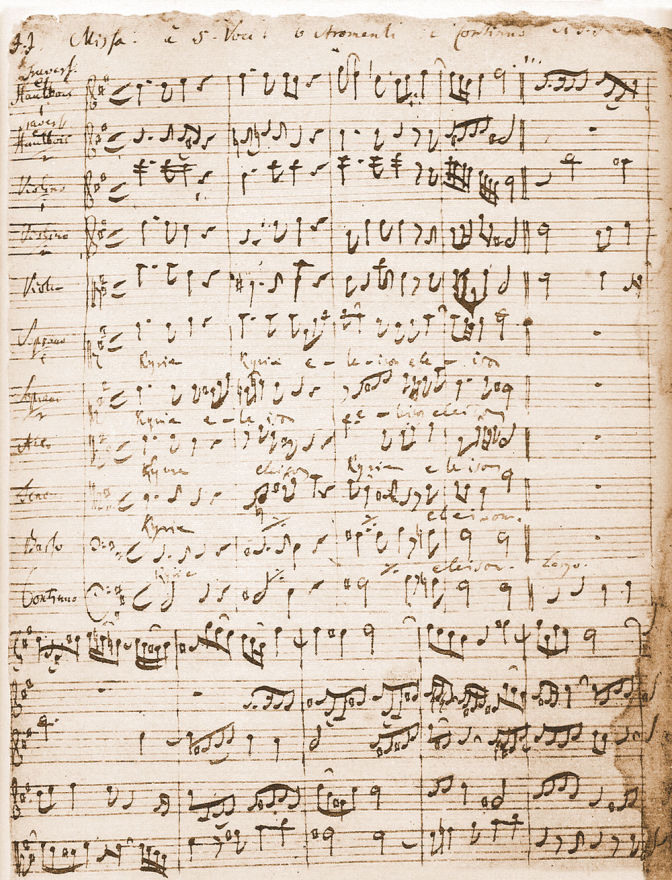 J. J. Missa. à 5. Voci. 6 Stromenti e Continuo
Travers.
Hautbois
1
Travers
Hautbois
2
Violino
1
Violino
2
Viola
Soprano
1
Kyrie Kyrie e - le - ison ele - ison
Soprano
2
Kyrie e - le - ison e - leison eleison
Alto
Kyrie eleison Kyrie eleison
Tenore
Kyrie eleison.
Basso
Kyrie eleison. Largo.
Continuo